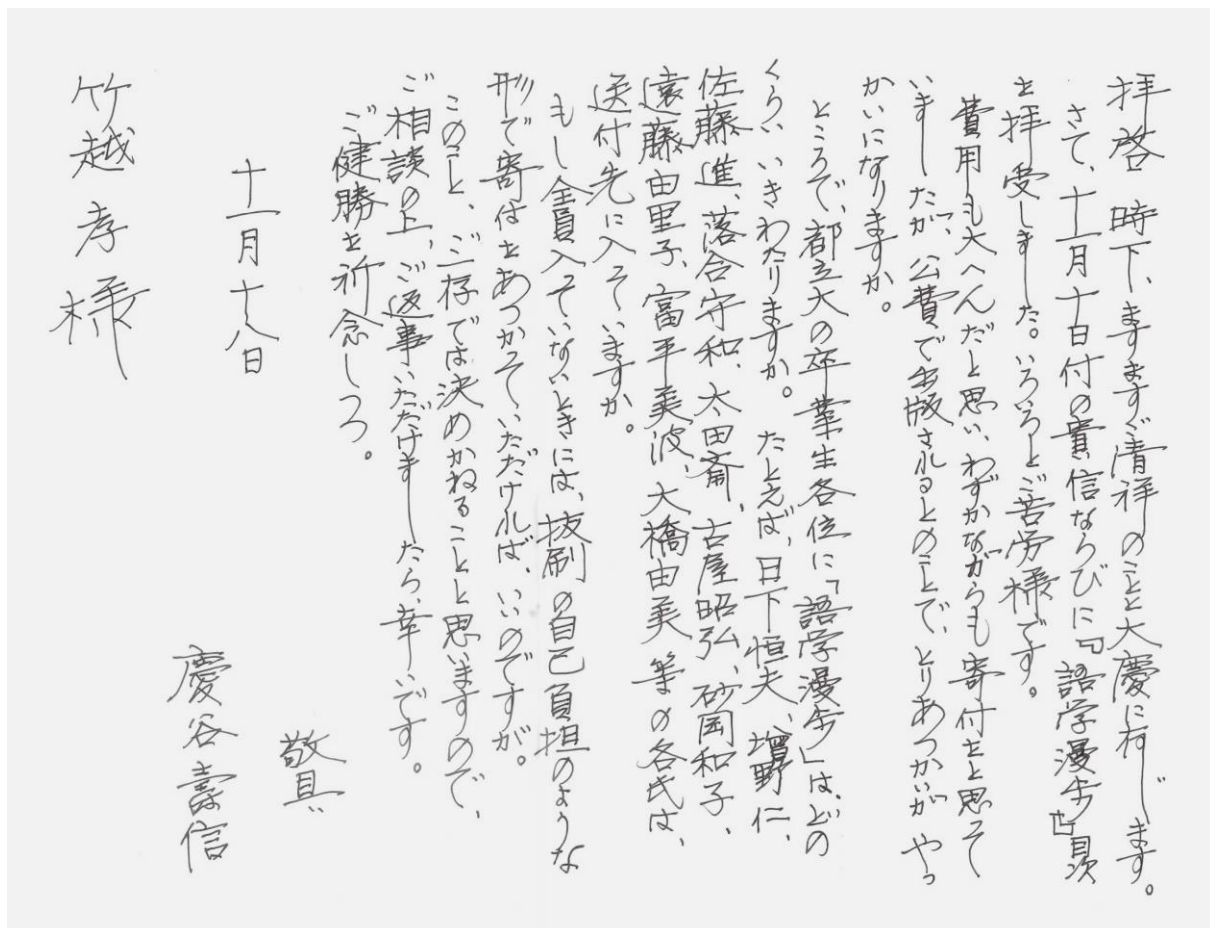 拝啓 時下、ますますご清祥のことと大慶に存じます。
さて、十一月十日付の貴信ならびに『語学漫歩』目次
を拝受しました。いろいろとご苦労様です。
費用も大へんだと思い、わずかながらも寄付をと思って
いましたが、公費で出版されるとのことで、とりあつかいがやっ
かいになりますか。
ところで、都立大の卒業生各位に「語学漫歩」は、どの
くらいいきわたりますか。たとえば、日下恒夫、増野仁、
佐藤進、落合守和、太田斎、古屋昭弘、砂岡和子、
遠藤由里子、富平美波、大橋由美等の各氏は、
送付先に入っていますか。
もし全員入っていないときには、抜刷の自己負担のような
形で寄付をあつかっていただければ、いいのですが。
このこと、ご一存では決めかねることと思いますので、
ご相談の上、ご返事いただけましたら、幸いです。
ご健勝を祈念しつつ。
敬具
十一月十八日
慶谷壽信
竹越孝様